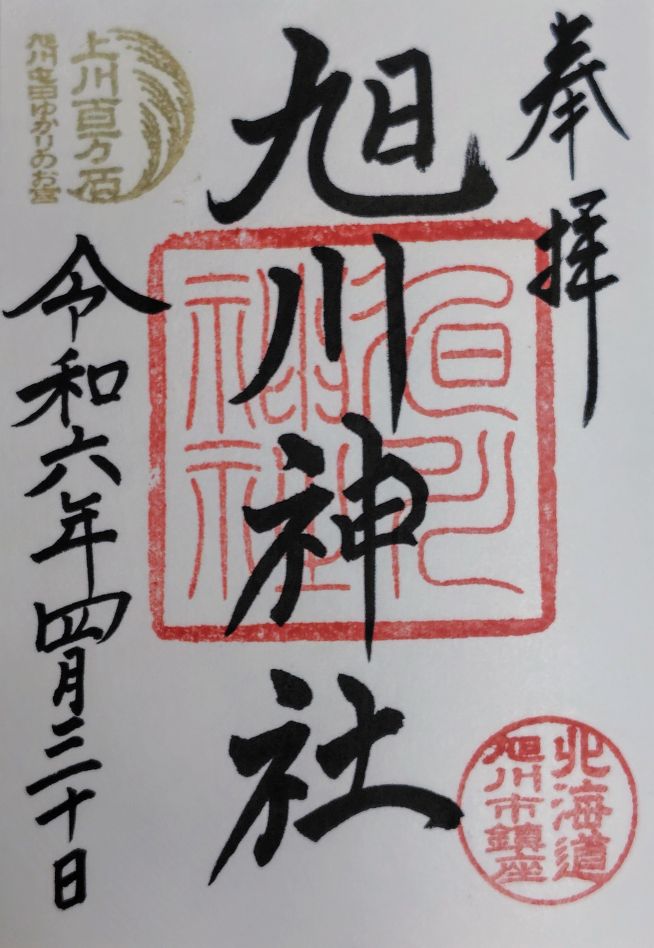 奉拝
旭川神社
旭川神社
北海道
旭川市鎮座
上川百万石
旭川屯田ゆかりのお宮
令和六年四月三十日